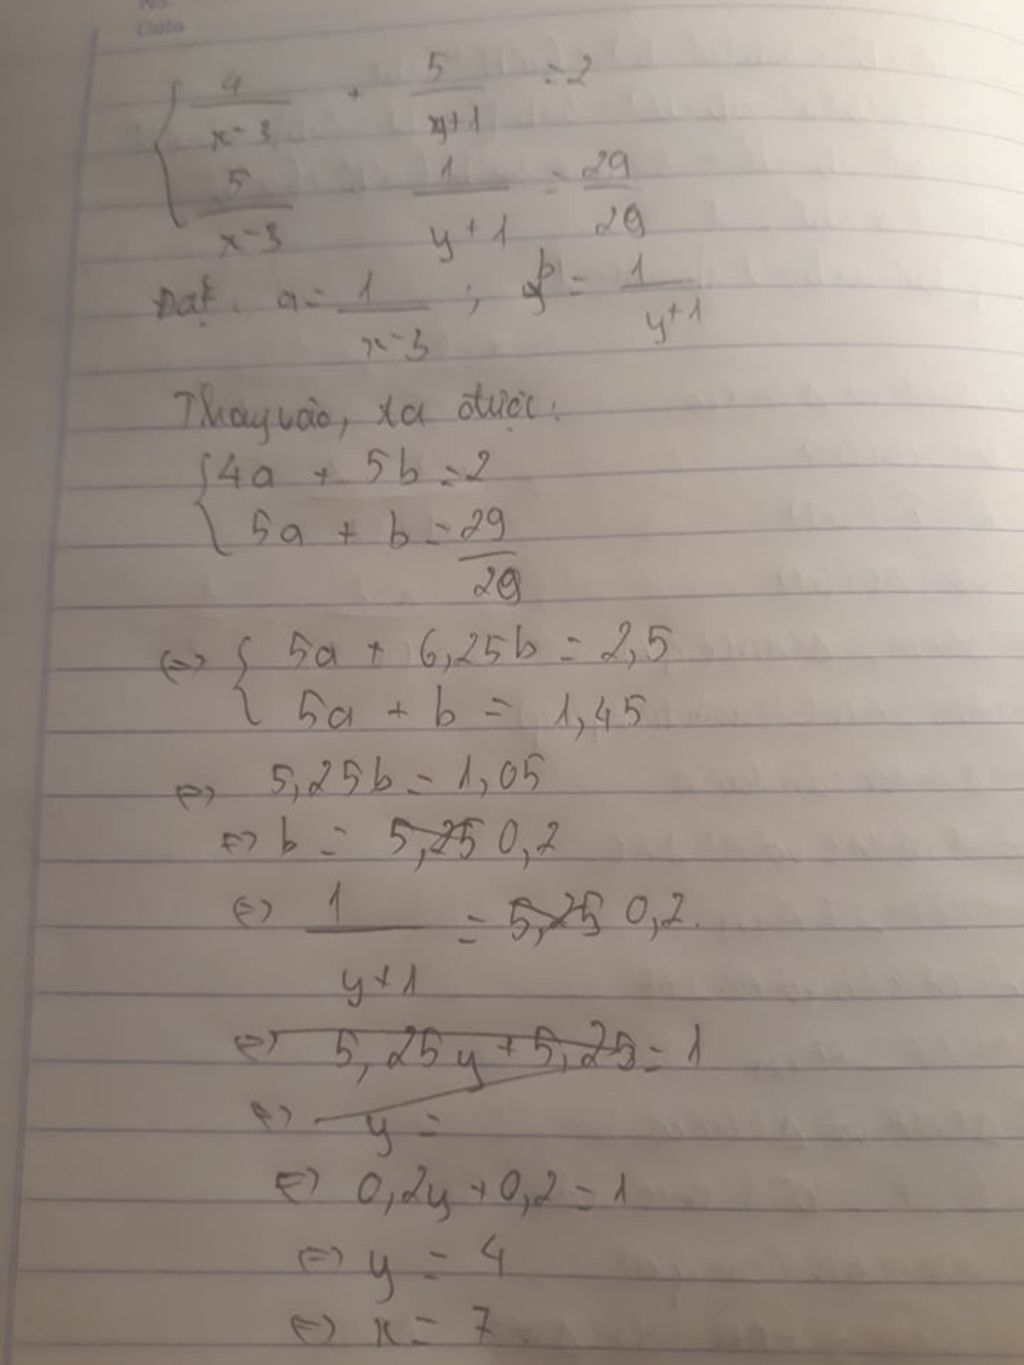 No
Date
{ 4/(x-3) + 5/(y+1) = 2
5/(x-3) 1/(y+1) = 29/20
Đặt. a = 1/(x-3) ; b = 1/(y+1)
Thay vào, ta được:
{ 4a + 5b = 2
5a + b = 29/20
<=> { 5a + 6,25b = 2,5
5a + b = 1,45
<=> 5,25b = 1,05
<=> b = 5,25 0,2
<=> 1/(y+1) = 5,25 0,2.
<=> 5,25y + 5,25 = 1
<=> y =
<=> 0,2y + 0,2 = 1
<=> y = 4
<=> x = 7.